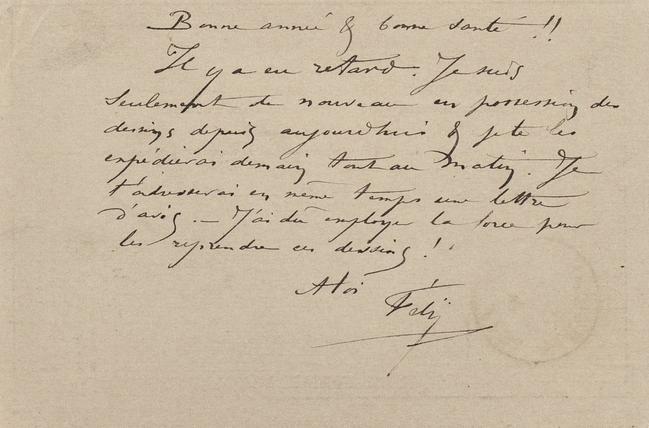 Bonne année & bonne santé !!
Il y a eu retard. Je suis
seulement de nouveau en possession des
dessins depuis aujourdhui & je te les
expédierai demain tout au matin. Je
t'adresserai en même temps une lettre
d'avis. — J'ai dû employé la force pour
les reprendre ces dessins !
A toi